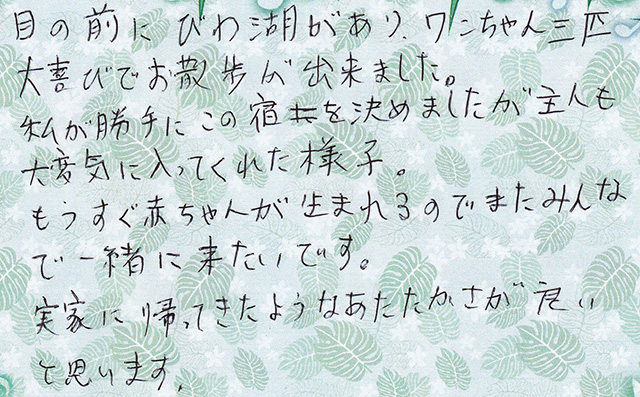 目の前にびわ湖があり、ワンちゃん三匹
大喜びでお散歩が出来ました。
私が勝手にこの宿を決めましたが主人も
大変気に入ってくれた様子。
もうすぐ赤ちゃんが生まれるのでまたみんな
で一緒に来たいです。
実家に帰ってきたようなあたたかさが良い
と思います。